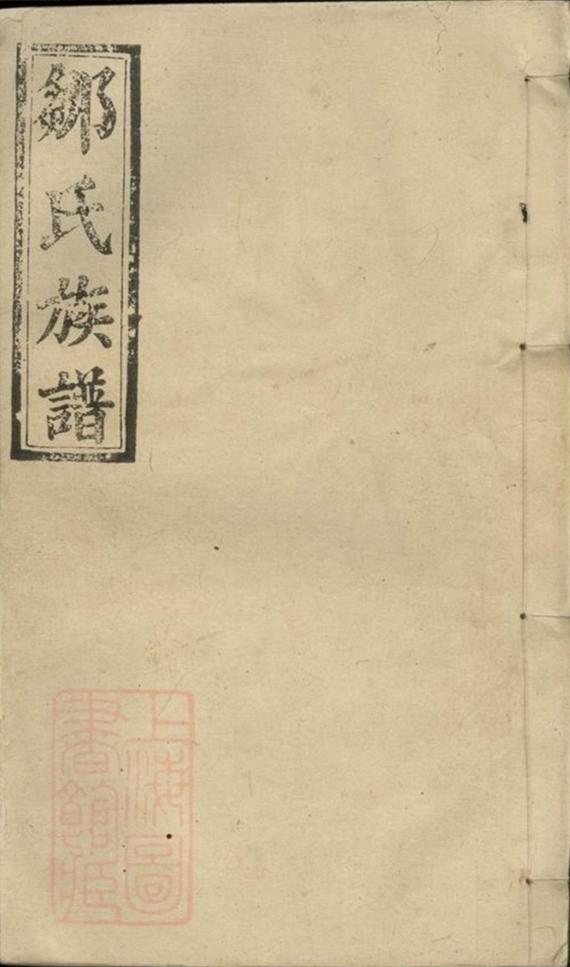 鄒氏族譜
上海圖
書館藏